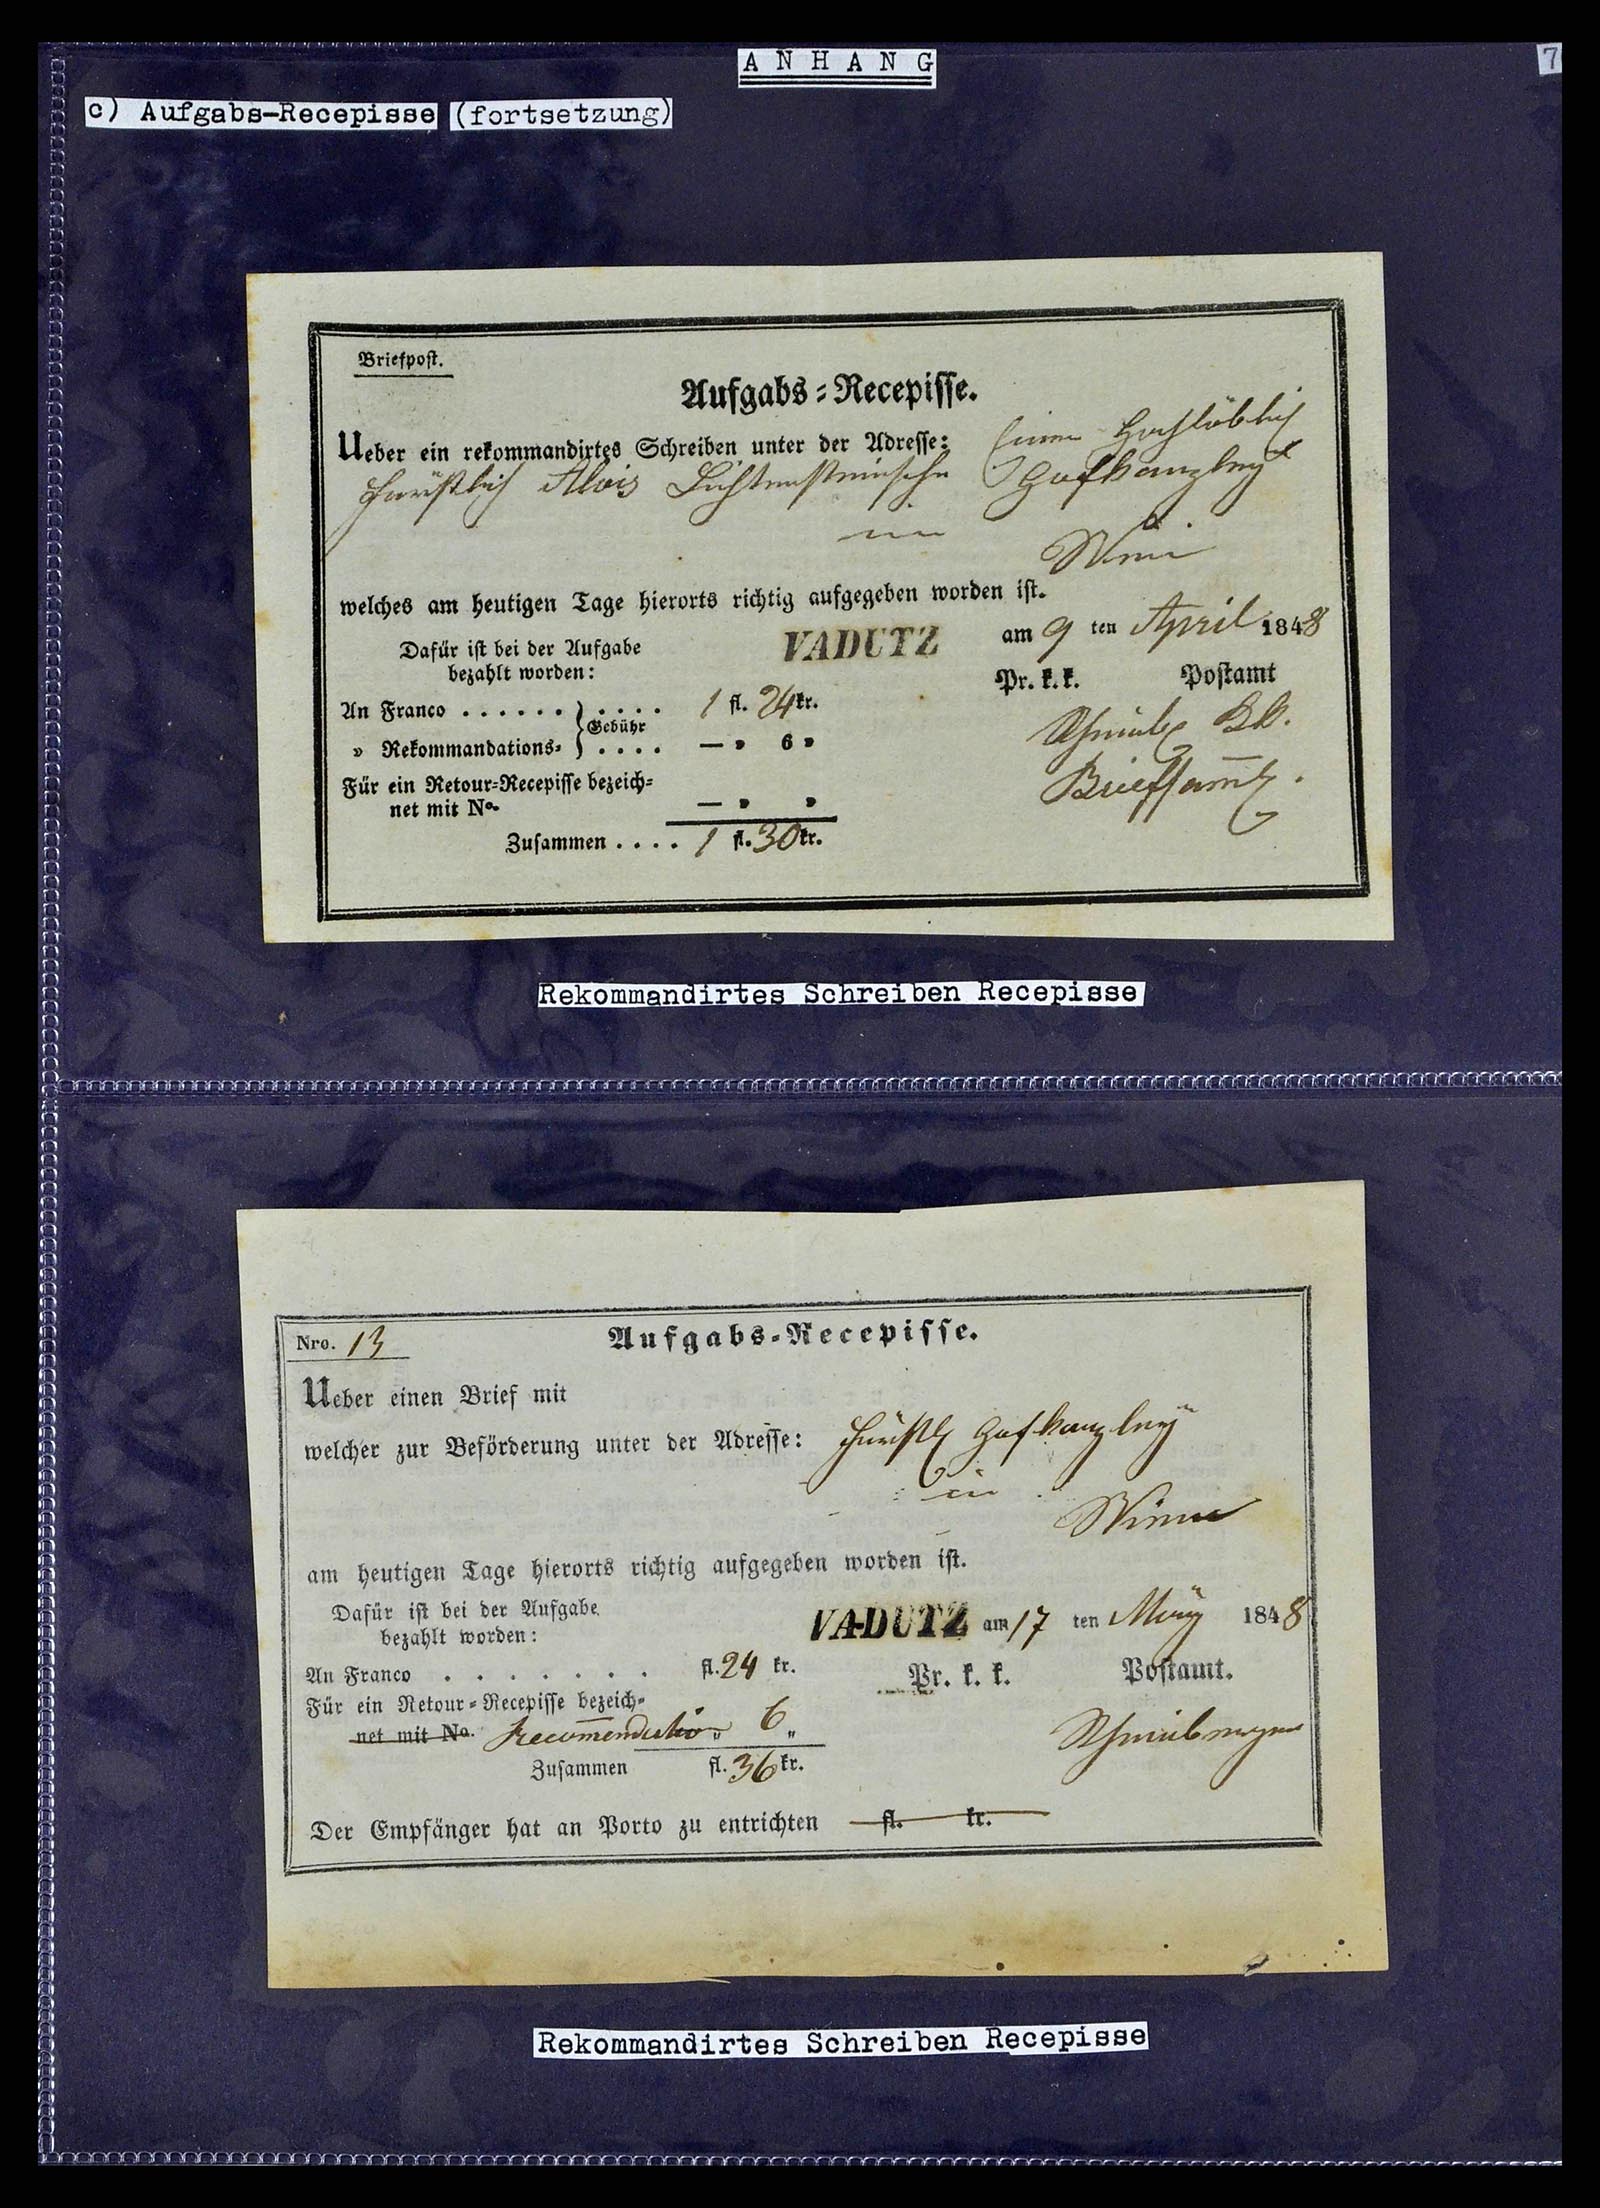 A N H A N G
7
c) Aufgabs-Recepisse (fortsetzung)
Briefpost.
Aufgabs-Recepisse.
Ueber ein rekommandirtes Schreiben unter der Adresse: Einer Hochlöblich
Fürstlich Alois Lichtensteinsche Hofkanzley
in
Wien
welches am heutigen Tage hierorts richtig aufgegeben worden ist.
Dafür ist bei der Aufgabe
bezahlt worden:
VADUTZ am 9 ten April 1848
Pr. k. k. Postamt
An Franco . . . . . . } . . . . 1 fl. 24 kr.
Gebühr
" Rekommandations- } . . . . — " 6 "
Für ein Retour-Recepisse bezeich-
net mit No. — " "
Zusammen . . . . 1 fl. 30 kr.
Rekommandirtes Schreiben Recepisse
Nro. 13
Aufgabs-Recepisse.
Ueber einen Brief mit
welcher zur Beförderung unter der Adresse: Fürstl Hofkanzley
in
Wien
am heutigen Tage hierorts richtig aufgegeben worden ist.
Dafür ist bei der Aufgabe
bezahlt worden:
VADUTZ am 17 ten März 1848
An Franco . . . . . . . fl. 24 kr.
Pr. k. k. Postamt.
Für ein Retour-Recepisse bezeich-
net mit No. Recommendation " 6 "
Zusammen fl. 36 kr.
Der Empfänger hat an Porto zu entrichten fl. kr.
Rekommandirtes Schreiben Recepisse